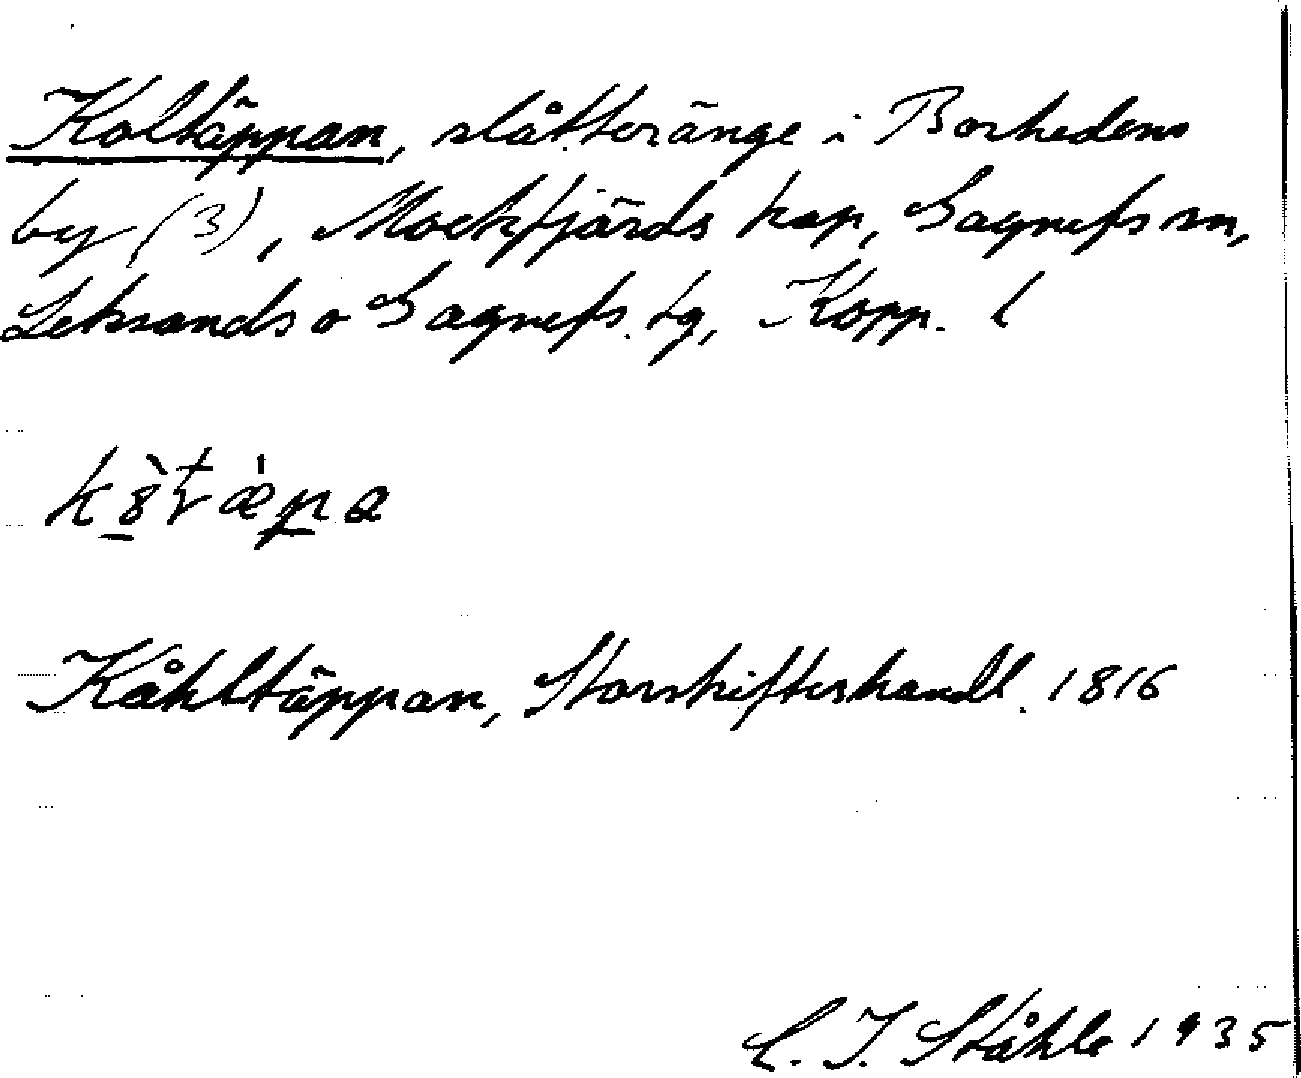 Koltäppan, slåtteränge i Borhedens
by (3), Mockfjärds kap, Gagnefs sn,
Leksands o Gagnefs. tg, Kopp. l
Kåhltäppan, Storskifteshandl. 1816
C. I. Ståhle 1935